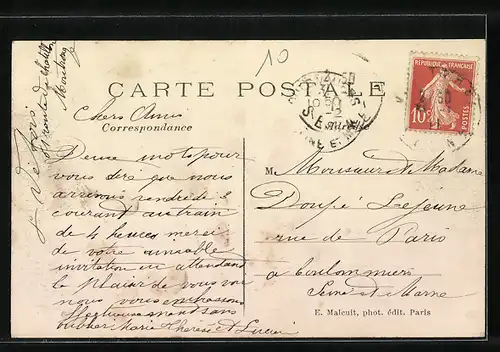 10
CARTE POSTALE
REPUBLIQUE FRANÇAISE
10c
POSTES
Chers Amis
Correspondance
Deux mots pour
vous dire que nous
arrivons vendredi 3
courant au train
de 4 heures merci
de votre aimable
invitation en attendant
le plaisir de vous voir
nous vous embrassons
affectueusement sans
oublier Marie Thérèse et Lucien
M. Monsieur et Madame
Doupé Lejeune
rue de Paris
a Coulommiers
Seine et Marne
E. Malcuit, phot. édit. Paris
route de Chatillon
Montrouge